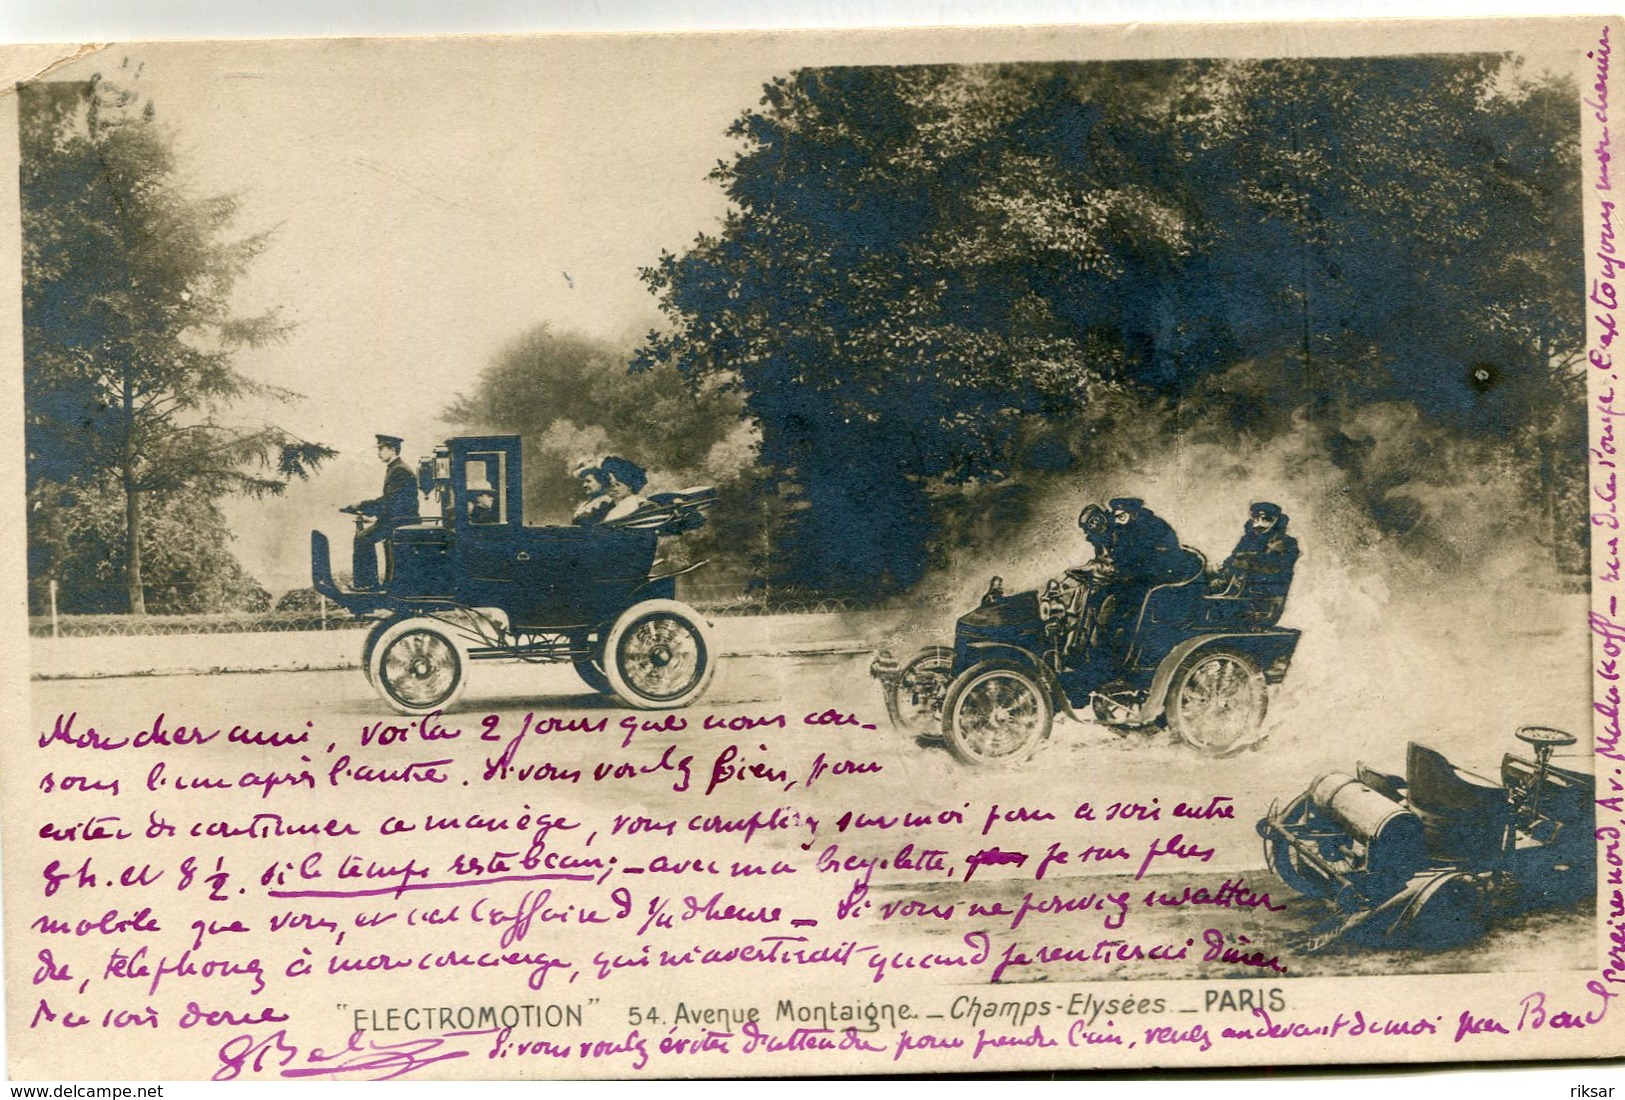 Mon cher ami, voila 2 jours que nous cou-
rons l'un après l'autre. Si vous voulez bien, pour
eviter de continuer ce manège, vous compterez sur moi pour ce soir entre
8 h. et 8 ½. si le temps reste beau; — avec ma bicyclette, je suis plus
mobile que vous, et c'est l'affaire d'¼ d'heure — Si vous ne pouvez m'atten
dre, téléphonez à mon concierge, qui m'avertirait quand je rentrerai dîner.
A ce soir donc
"ELECTROMOTION" 54. Avenue Montaigne. _ Champs-Elysées _ PARIS
Si vous voulez éviter d'attendre pour prendre l'air, venez au devant de moi par Boul
Pereire nord, Av. Malakoff — rue de la Pompe. C'est toujours mon chemin
delcampe.net
riksar